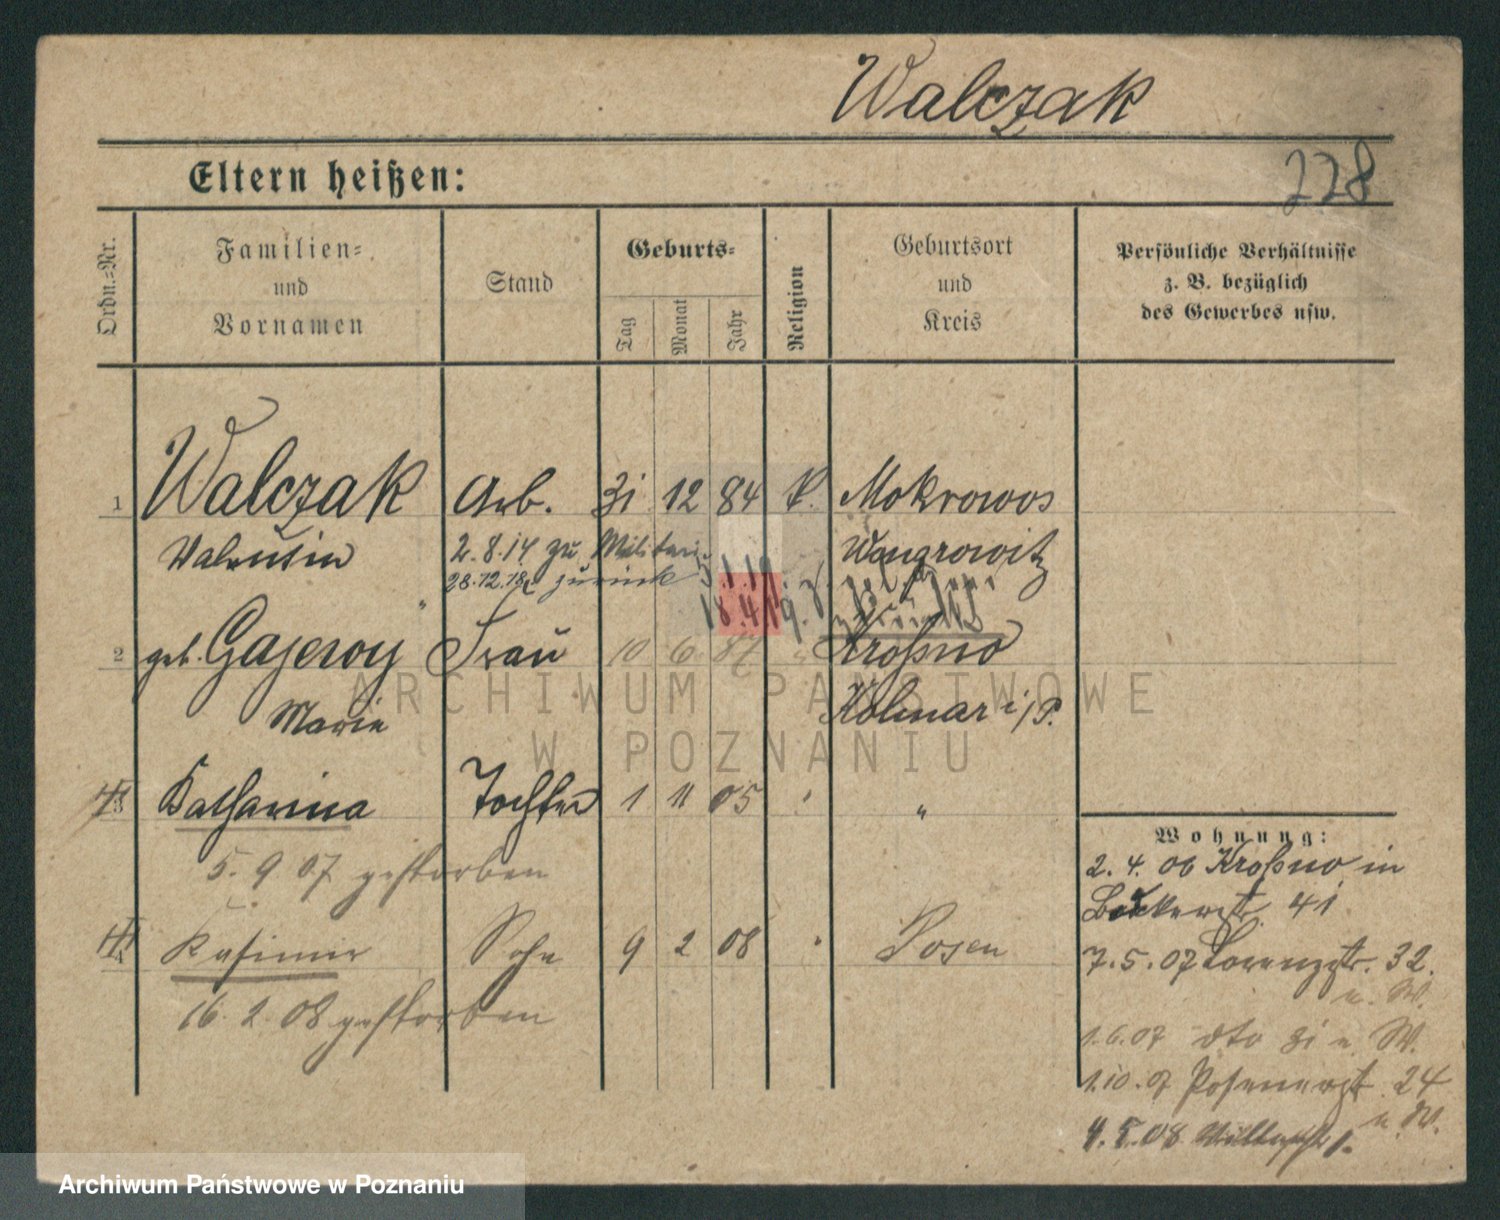 Walczak
228
Eltern heißen:
Ordn.-Nr.
Familien- und Vornamen
Stand
Geburts-
Tag Monat Jahr
Religion
Geburtsort und Kreis
Persönliche Verhältnisse z. B. bezüglich des Gewerbes usw.
1 Walczak Arb. 31 12 84 k. Mokronos
Valentin 2.8.14 zu Militär Wongrowitz
28.12.18 zurück 3.1.19
18.4.19.
2 geb. Gajewy Frau 10 6 87 " Kroßno
Marie Kolmar i/P.
3 Katharina Tochter 1 11 05 " "
5. 9 07 gestorben
4 Kasimir Sohn 9 2 08 " Posen
16. 2. 08 gestorben
Wohnung:
2. 4. 06 Kroßno in
Bäckerstr. 41
7. 5. 07 Lorenzstr. 32.
n. W.
1.6.07 dto 31 n. W.
1.10.07 Posenerstr. 24
n. W.
4. 5. 08 1.
ARCHIWUM PAŃSTWOWE
W POZNANIU
Archiwum Państwowe w Poznaniu